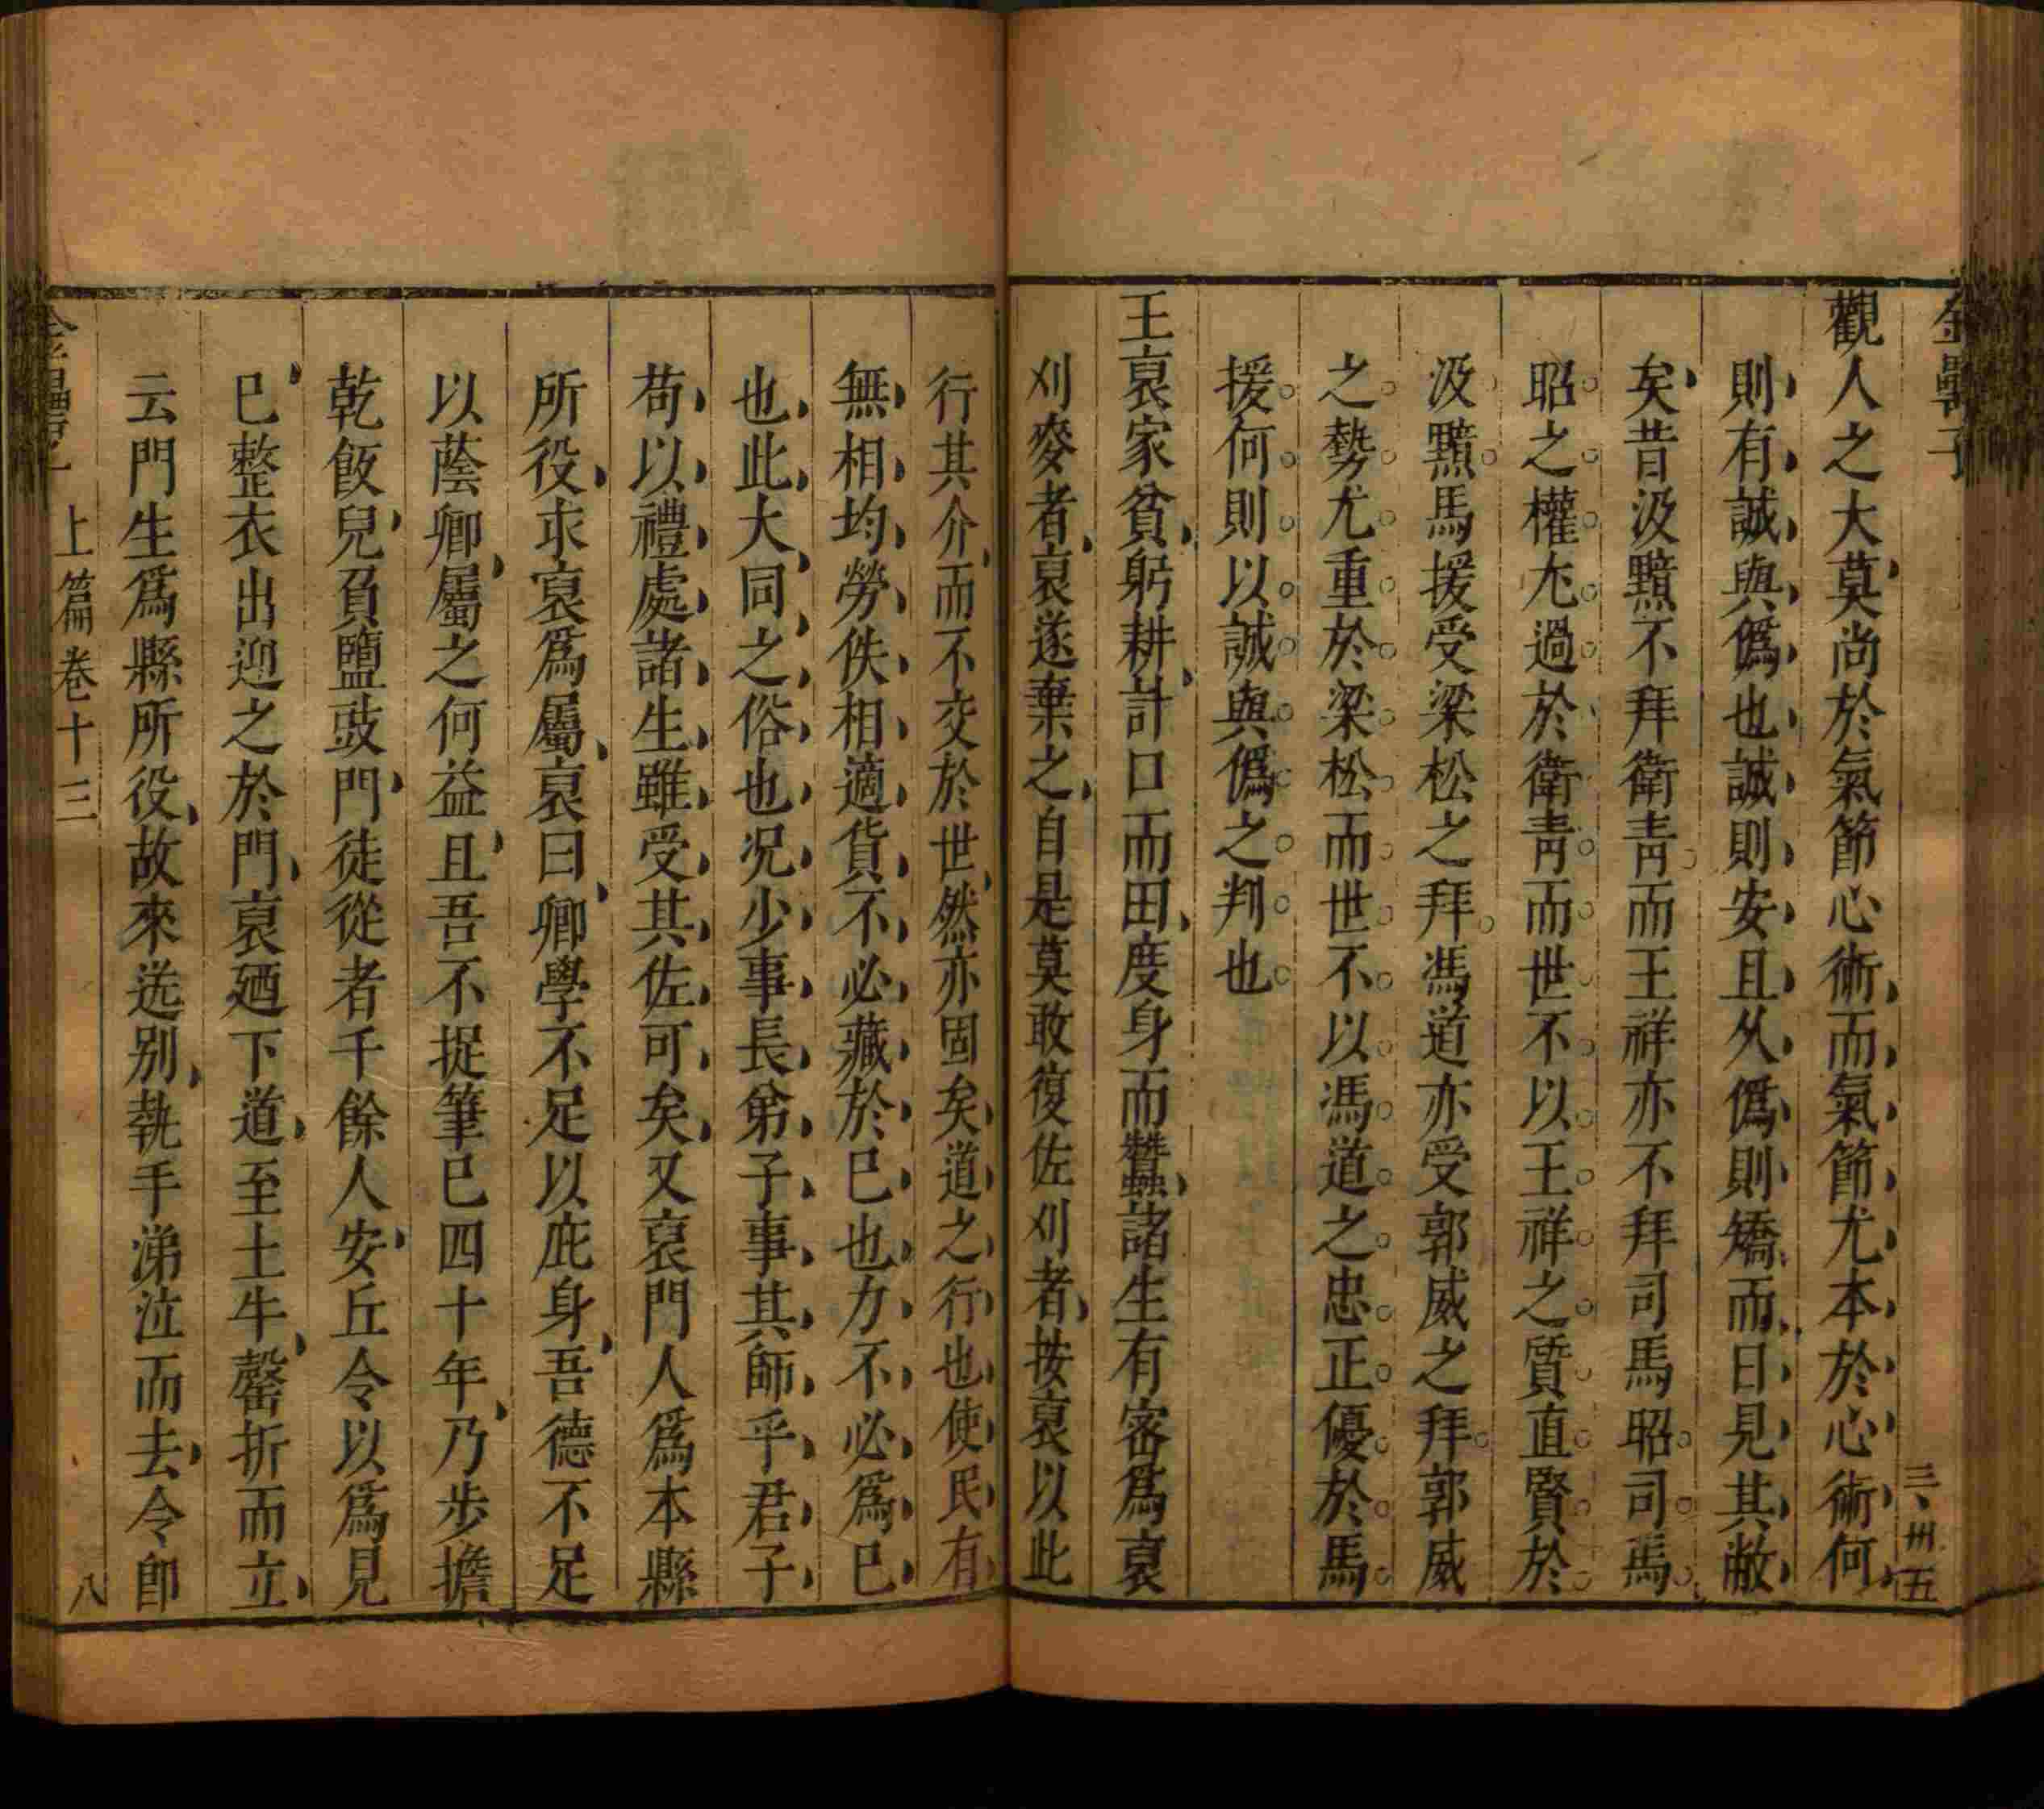 金罍子
三、卅五
觀人之大莫尚於氣節心術而氣節尤本於心術何
則有誠與僞也誠則安且久僞則矯而日見其敝
矣昔汲黯不拜衛靑而王祥亦不拜司馬昭司馬
昭之權尢過於衛靑而世不以王祥之質直賢於
汲黯馬援受梁松之拜馮道亦受郭威之拜郭威
之勢尤重於梁松而世不以馮道之忠正優於馬
援何則以誠與僞之判也
王裒家貧躬耕計口而田度身而蠶諸生有密爲裒
刈麥者裒遂棄之自是莫敢復佐刈者按裒以此
行其介而不交於世然亦固矣道之行也使民有
無相均勞佚相適貨不必藏於巳也力不必爲巳
也此大同之俗也况少事長弟子事其師乎君子
苟以禮處諸生雖受其佐可矣又裒門人爲本縣
所役求裒爲屬裒曰卿學不足以庇身吾德不足
以蔭卿屬之何益且吾不捉筆巳四十年乃步擔
乾飯兒負鹽豉門徒從者千餘人安丘令以爲見
巳整衣出迎之於門裒廼下道至土牛罄折而立
云門生爲縣所役故來送别執手涕泣而去令即
上篇卷十三
八